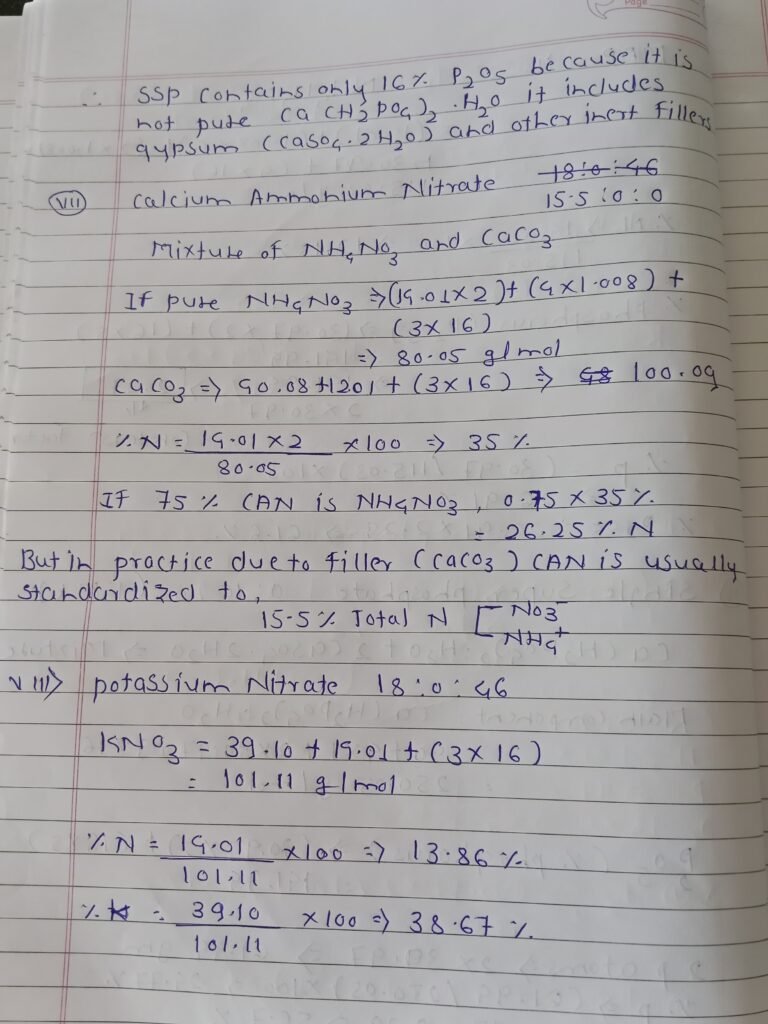 Page
∴ SSP contains only 16% P₂O₅ because it is
not pure Ca(H₂PO₄)₂·H₂O it includes
gypsum (CaSO₄·2H₂O) and other inert fillers
(VII) Calcium Ammonium Nitrate ~~18:0:46~~
15.5:0:0
Mixture of NH₄NO₃ and CaCO₃
If pure NH₄NO₃ ⇒ (14.01×2)+(4×1.008)+
(3×16)
=> 80.05 g/mol
CaCO₃ => 40.08+1201+(3×16) => ~~48~~ 100.09
% N = 14.01×2 / 80.05 ×100 => 35 %
If 75% CAN is NH₄NO₃, 0.75×35%
= 26.25 % N
But in practice due to filler (CaCO₃) CAN is usually
standardized to,
15.5% Total N [ NO₃⁻
NH₄⁺
VIII> potassium Nitrate 18:0:46
KNO₃ = 39.10+14.01+(3×16)
= 101.11 g/mol
% N = 14.01 / 101.11 ×100 => 13.86 %
% K = 39.10 / 101.11 ×100 => 38.67 %.